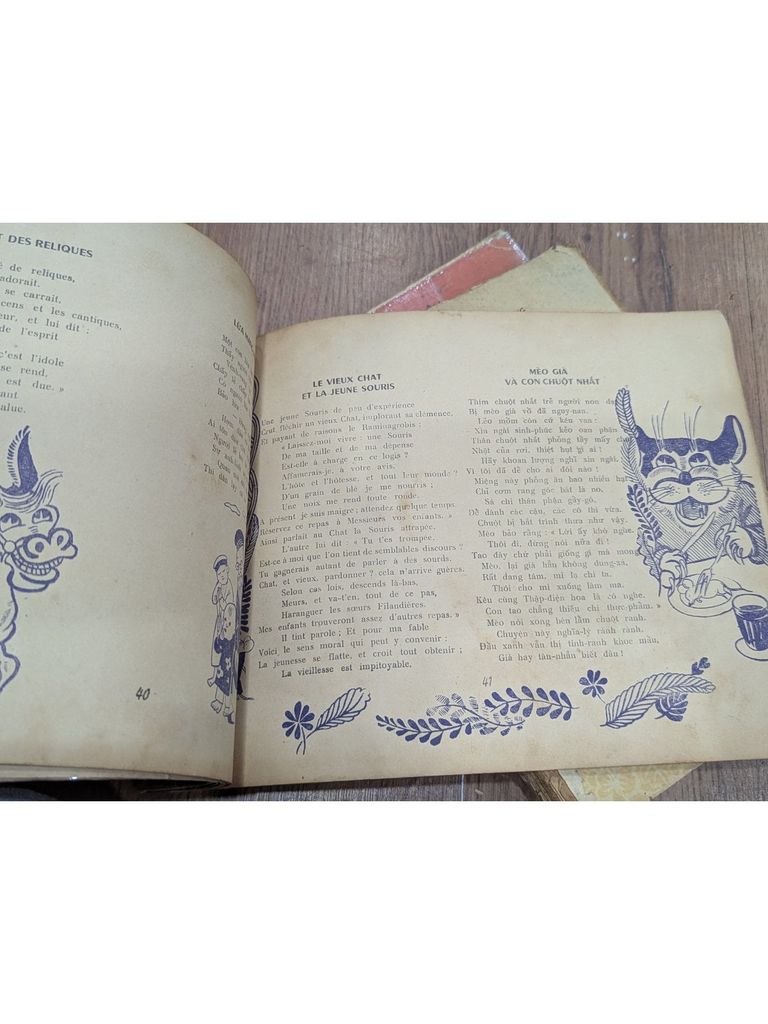 T DES RELIQUES
é de reliques,
adorait.
se carrait,
cens et les cantiques,
eur, et lui dit :
de l'esprit
»
c'est l'idole
se rend,
est due. »
ant
alue.
LỪA
Một con
Thấy
Chắp
Có người
Bảo
Quan
Thì dân
40
LE VIEUX CHAT
ET LA JEUNE SOURIS
Une jeune Souris de peu d'expérience
Crut fléchir un vieux Chat, implorant sa clémence,
Et payant de raisons le Raminagrobis :
« Laissez-moi vivre : une Souris
De ma taille et de ma dépense
Est-elle à charge en ce logis ?
Affamerais-je, à votre avis,
L'hôte et l'hôtesse, et tout leur monde ?
D'un grain de blé je me nourris ;
Une noix me rend toute ronde.
A présent je suis maigre ; attendez quelque temps.
Réservez ce repas à Messieurs vos enfants. »
Ainsi parlait au Chat la Souris attrapée.
L'autre lui dit : « Tu t'es trompée.
Est-ce à moi que l'on tient de semblables discours ?
Tu gagnerais autant de parler à des sourds.
Chat, et vieux, pardonner ? cela n'arrive guères.
Selon ces lois, descends là-bas,
Meurs, et va-t'en, tout de ce pas,
Haranguer les sœurs Filandières.
Mes enfants trouveront assez d'autres repas. »
Il tint parole ; Et pour ma fable
Voici le sens moral qui peut y convenir :
La jeunesse se flatte, et croit tout obtenir ;
La vieillesse est impitoyable.
MÈO GIÀ
VÀ CON CHUỘT NHẮT
Thím chuột nhắt trẻ người non dạ
Bị mèo già vồ đã nguy-nan.
Lẻo mồm còn cứ kêu van :
Xin ngài sinh-phúc kẻo oan phận
Thân chuột nhắt phỏng tầy mấy chút
Nhặt của rơi, thiệt hụt gì ai !
Hãy khoan lượng nghĩ xin ngài,
Vì tôi đã dễ cho ai đói nào !
Miệng này phỏng ăn bao nhiêu hạt
Chỉ cơm rang góc bát là no,
Sá chi thân phận gầy-gò,
Để dành các cậu, các cô thì vừa.
Chuột bị bắt trình thưa như vậy.
Mèo bảo rằng : « Lời ấy khó nghe.
Thôi đi, đừng nói nữa đi !
Tao đây chứ phải giống gì mà mong
Mèo, lại già hẳn không dung-xá,
Rất đang tâm, mi lạ chi ta.
Thôi chi mò xuống làm ma.
Kêu cùng Thập-điện họa là có nghe.
Con tao chẳng thiếu chi thực-phẩm. »
Mèo nói xong bèn tẩm chuột ranh.
Chuyện này nghĩa-lý rành rành.
Đầu xanh vẫn thị tinh-ranh khoe mầu,
Già hay tàn-nhẫn biết đâu !
41